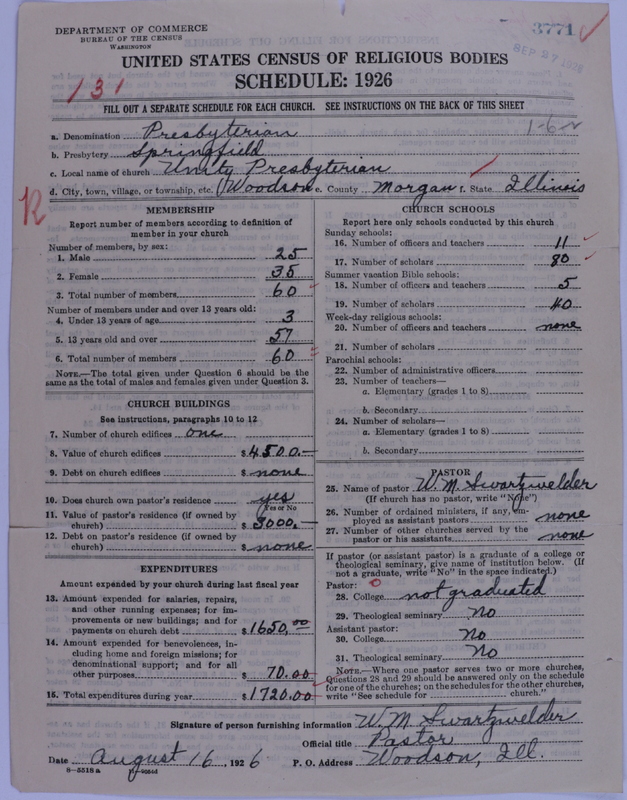 DEPARTMENT OF COMMERCE
BUREAU OF THE CENSUS
WASHINGTON
3771
SEP 27 1926
UNITED STATES CENSUS OF RELIGIOUS BODIES
SCHEDULE: 1926
131
FILL OUT A SEPARATE SCHEDULE FOR EACH CHURCH. SEE INSTRUCTIONS ON THE BACK OF THIS SHEET
a. Denomination Presbyterian
b. Presbytery Springfield
c. Local name of church Unity Presbyterian
d. City, town, village, or township, etc. Woodson e. County Morgan f. State Illinois
MEMBERSHIP
Report number of members according to definition of
member in your church
Number of members, by sex:
1. Male 25
2. Female 35
3. Total number of members 60
Number of members under and over 13 years old:
4. Under 13 years of age 3
5. 13 years old and over 57
6. Total number of members 60
NOTE.—The total given under Question 6 should be the
same as the total of males and females given under Question 3.
CHURCH BUILDINGS
See instructions, paragraphs 10 to 12
7. Number of church edifices one
8. Value of church edifices $4500.—
9. Debt on church edifices $ none
10. Does church own pastor's residence yes
Yes or No
11. Value of pastor's residence (if owned by
church) $ 3000.—
12. Debt on pastor's residence (if owned by
church) $ none
EXPENDITURES
Amount expended by your church during last fiscal year
13. Amount expended for salaries, repairs,
and other running expenses; for im-
provements or new buildings; and for
payments on church debt $1650.00
14. Amount expended for benevolences, in-
cluding home and foreign missions; for
denominational support; and for all
other purposes $ 70.00
15. Total expenditures during year $1720.00
CHURCH SCHOOLS
Report here only schools conducted by this church
Sunday schools:
16. Number of officers and teachers 11
17. Number of scholars 80
Summer vacation Bible schools:
18. Number of officers and teachers 5
19. Number of scholars 40
Week-day religious schools:
20. Number of officers and teachers none
21. Number of scholars
Parochial schools:
22. Number of administrative officers
23. Number of teachers—
a. Elementary (grades 1 to 8)
b. Secondary
24. Number of scholars—
a. Elementary (grades 1 to 8)
b. Secondary
PASTOR
25. Name of pastor W. M. Swartzwelder
(If church has no pastor, write "None")
26. Number of ordained ministers, if any, em-
ployed as assistant pastors none
27. Number of other churches served by the
pastor or his assistants none
If pastor (or assistant pastor) is a graduate of a college or
theological seminary, give name of institution below. (If
not a graduate, write "No" in the space indicated.)
Pastor:
28. College not graduated
29. Theological seminary No
Assistant pastor:
30. College No
31. Theological seminary No
NOTE.—Where one pastor serves two or more churches,
Questions 28 and 29 should be answered only on the schedule
for one of the churches; on the schedules for the other churches,
write "See schedule for church."
Signature of person furnishing information W. M. Swartzwelder
Official title Pastor
Date August 16, 1926 P. O. Address Woodson, Ill.
8—5518 a